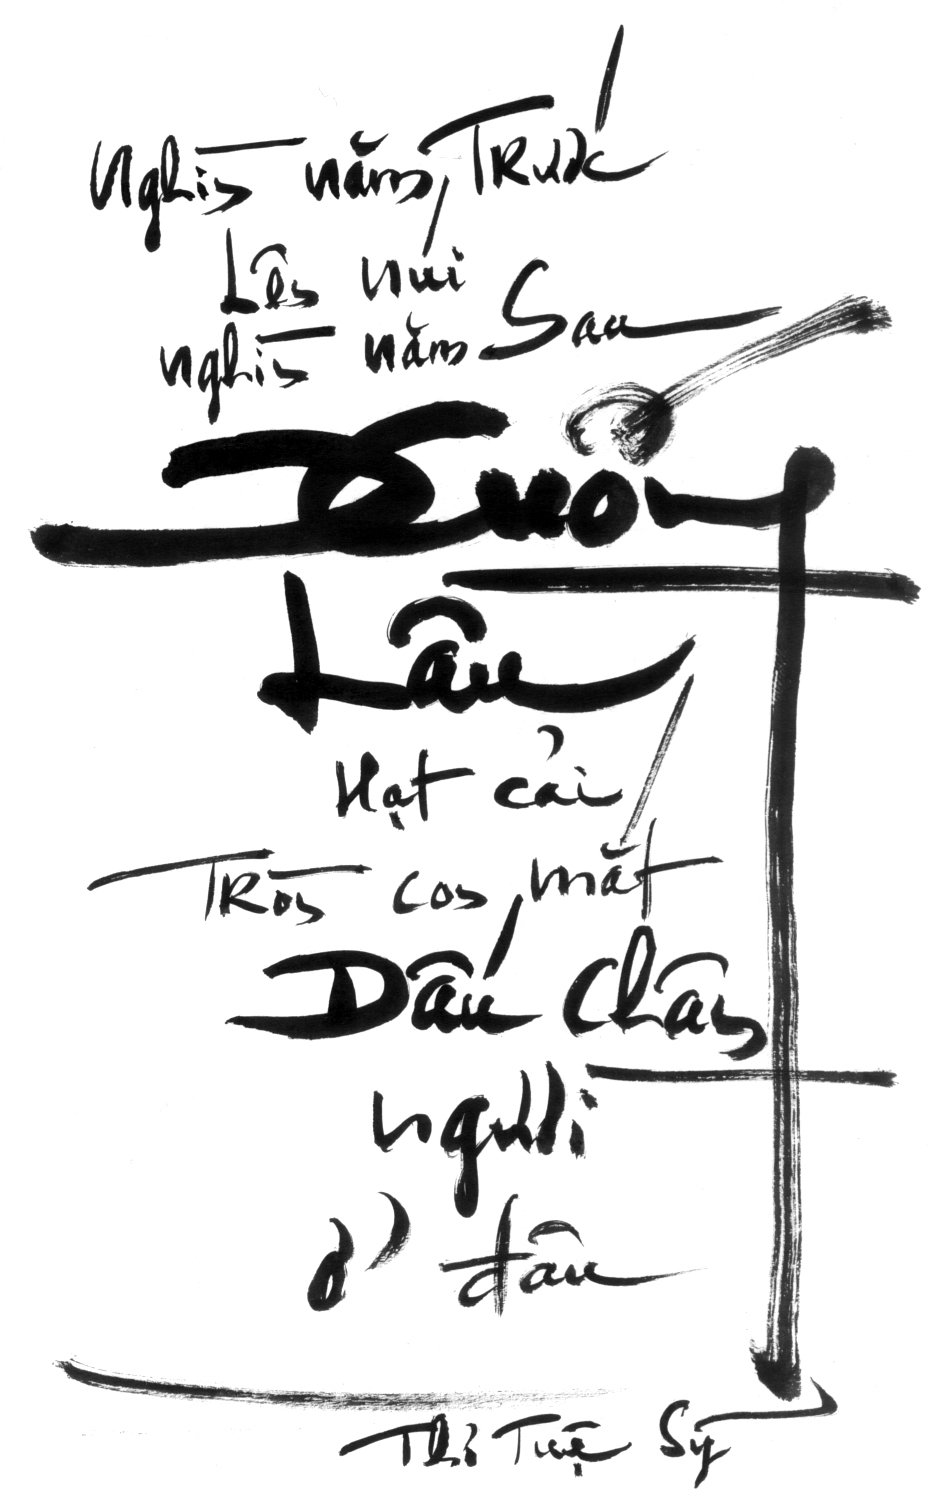 Nghìn năm Trước
Lên núi
nghìn năm Sau
Xuống
Lầu
Hạt cải
Tròn con mắt
Dấu Chân
người
ở đâu
Thơ Tuệ Sỹ